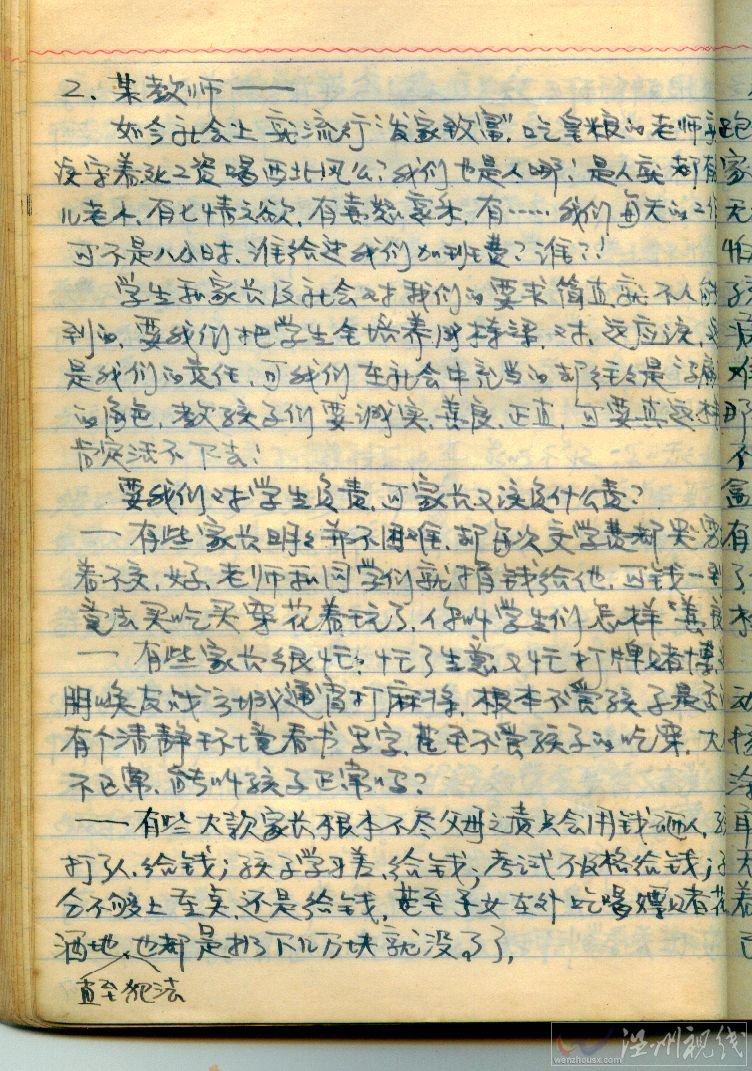 2. 某教师——
如今社会上就流行“发家致富”，吃皇粮的老师就
没守着死工资喝西北风么？我们也是人哪！是人就都有
儿老小，有七情六欲，有喜怒哀乐，有……我们每天的工作
可不是八小时，谁给过我们加班费？谁？！
学生和家长及社会对我们的要求简直就不人能
到的，要我们把学生全培养成栋梁，对，这应该，
是我们的责任，可我们在社会中充当的却往往是
的角色，教孩子们要诚实、善良、正直，可要真这样
肯定活不下去！
要我们对学生负责，可家长又该负什么责？
一 有些家长明明并不困难，却每次交学费都哭穷
着不交，好，老师和同学们就捐钱给他，可钱一到
竟去买吃买穿花着玩了，你叫学生们怎样“善良
一 有些家长很忙：忙了生意又忙打牌赌博，
朋唤友 通宵打麻将，根本不管孩子是否
有个清静环境看书写字，甚至不管孩子的吃穿，大
不正常，能叫孩子正常吗？
——有些大款家长根本不尽父母之责只会用钱砸人，孩
打了人，给钱；孩子学习差，给钱；考试不及格给钱；
会不够上重点，还是给钱，甚至子女在外吃喝嫖赌花
酒地，也都是扔下几万块就没事了，
直至犯法
温州视线
wenzhousx.com